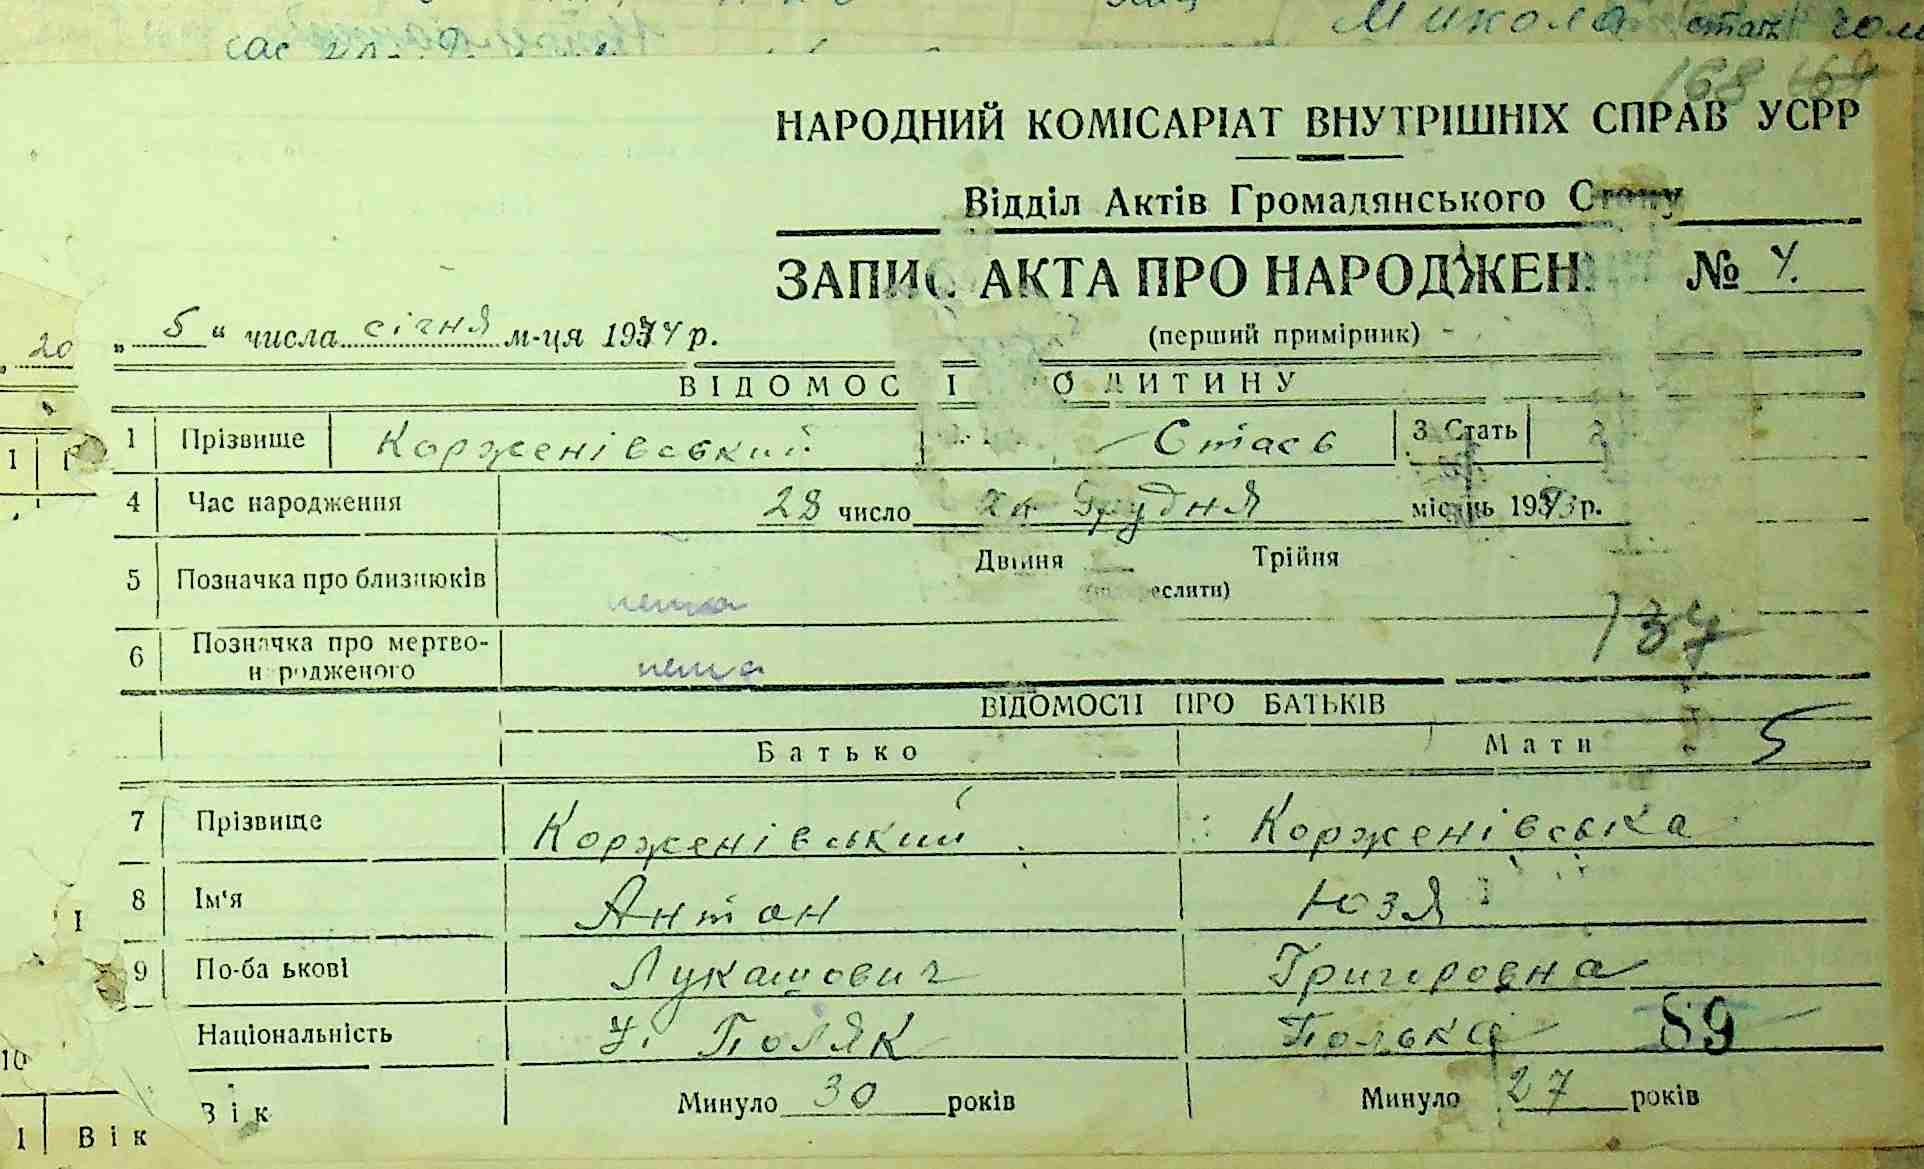 Микола стать
168
НАРОДНИЙ КОМІСАРІАТ ВНУТРІШНІХ СПРАВ УСРР
Відділ Актів Громадянського Стану
ЗАПИС АКТА ПРО НАРОДЖЕН № 4.
„ 5 “ числа січня м-ця 1934 р.
(перший примірник)
20
ВІДОМОС І О ДИТИНУ
1 Прізвище Корженівський Стась 3 Стать
4 Час народження 28 число грудня місяць 1933 р.
5 Позначка про близнюків нема Двійня Трійня
(підкреслити)
6 Позначка про мертво-
народженого нема
137
ВІДОМОСТІ ПРО БАТЬКІВ
Батько Мати 5
7 Прізвище Корженівський Корженівська
8 Ім'я Антон Юзя
9 По-ба ькові Лукашович Григоровна
Національність Поляк Полька 89
Вік Минуло 30 років Минуло 27 років
10
1 Вік